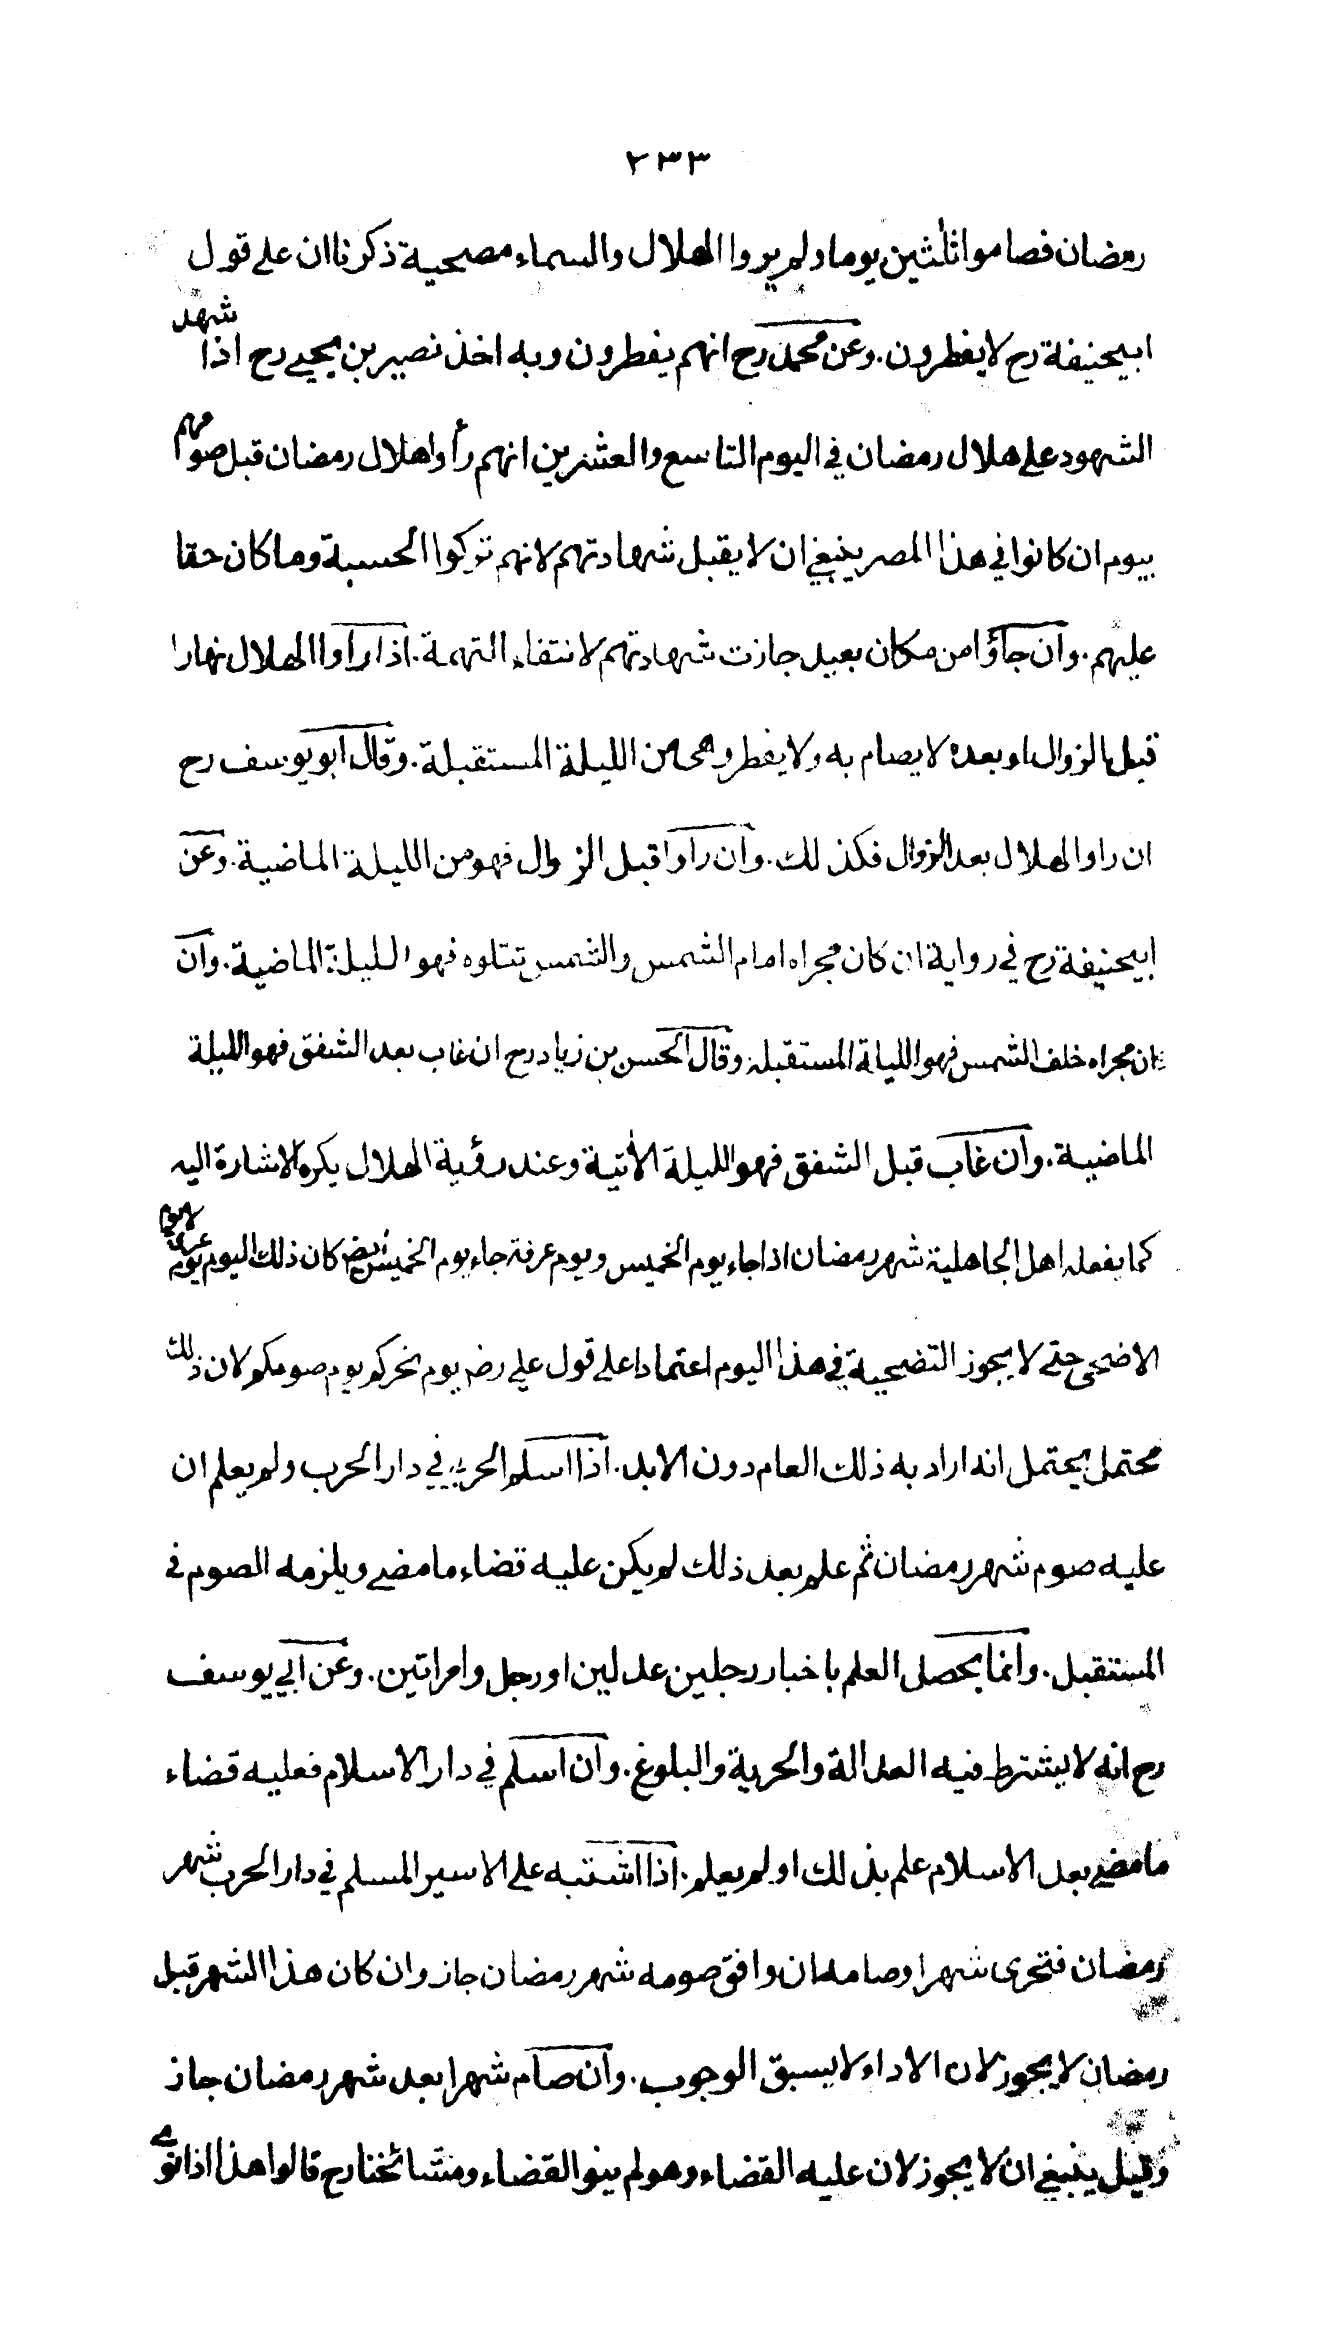 ٢٣٣
رمضان فصاموا ثلٰثين يوما ولم يروا الهلال والسماء مصحية ذكرنا ان على قول
ابيحنيفة رح لا يفطرون . وعن محمد رح انهم يفطرون وبه اخذ نصير بن يحيى رح اذا شهد
الشهود على هلال رمضان في اليوم التاسع والعشرين انهم رأوا هلال رمضان قبل صومهم
بيوم ان كانوا في هذا المصر ينبغي ان لا يقبل شهادتهم لانهم تركوا الحسبة وما كان حقا
عليهم . وان جاؤا من مكان بعيد جازت شهادتهم لانتفاء التهمة . اذا راوا الهلال نهارا
قبل الزوال او بعده لا يصام به ولا يفطر وهي من الليلة المستقبلة . وقال ابو يوسف رح
ان راوا الهلال بعد الزوال فكذلك . وان راوا قبل الزوال فهو من الليلة الماضية . وعن
ابيحنيفة رح في رواية ان كان مجراه امام الشمس والشمس تتلوه فهو لليلة الماضية . وان
ان مجراه خلف الشمس فهو الليلة المستقبلة وقال الحسن بن زياد رح ان غاب بعد الشفق فهو الليلة
الماضية . وان غاب قبل الشفق فهو الليلة الاٰتية وعند رؤية الهلال يكره الاشارة اليه
كما يفعله اهل الجاهلية شهر رمضان اذا جاء يوم الخميس ويوم عرفة جاء يوم الخميس ايضا كان ذلك اليوم يوم عرفة لا يوم
الاضحى حتى لا يجوز التضحية في هذا اليوم اعتمادا على قول علي رضـ يوم نحركم يوم صومكم لان ذلك
محتمل يحتمل انه اراد به ذلك العام دون الابد . اذا اسلم الحربي في دار الحرب ولم يعلم ان
عليه صوم شهر رمضان ثم علم بعد ذلك لم يكن عليه قضاء ما مضى ويلزمه الصوم في
المستقبل . وانما يحصل العلم باخبار رجلين عدلين او رجل وامراتين . وعن ابي يوسف
رح انه لا يشترط فيه العدالة والحرية والبلوغ . وان اسلم في دار الاسلام فعليه قضاء
ما مضى بعد الاسلام علم بذلك او لم يعلم . اذا اشتبه على الاسير المسلم في دار الحرب شهر
رمضان فتحرى شهرا وصامه ان وافق صومه شهر رمضان جاز وان كان هذا الشهر قبل
رمضان لا يجوز لان الاداء لا يسبق الوجوب . وان صام شهرا بعد شهر رمضان جاز
وقيل ينبغي ان لا يجوز لان عليه القضاء وهو لم ينو القضاء ومشائخنا رح قالوا هذا اذا نوى